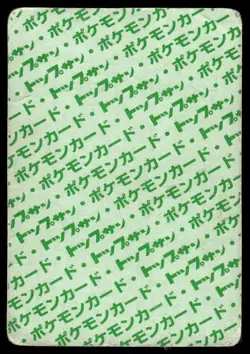 ポケモンカード・トップサン
ポケモンカード・トップサン・
トップサン・ポケモンカード・
ポケモンカード・トップサン・
トップサン・ポケモンカード
ポケモンカード・トップサン・
トップサン・ポケモンカード・
ポケモンカード・トップサン・
トップサン・ポケモンカード・
ポケモンカード・トップサン・
トップサン・ポケモンカード
ポケモンカード・トップサン・
トップサン・ポケモンカード・
ポケモンカード・トップサン
ポケモンカード・